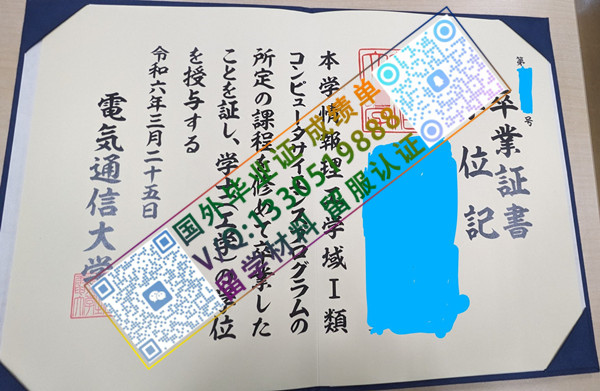 第
号
卒業証書
位記
本学情報理工学域Ⅰ類
コンピュータサイエンスプログラムの
所定の課程を修めて卒業した
ことを証し、学士(工学)の学位
を授与する
令和六年三月二十五日
電気通信大学
国外毕业证 成绩单
V.QQ:1330519888
留学材料 留服认证